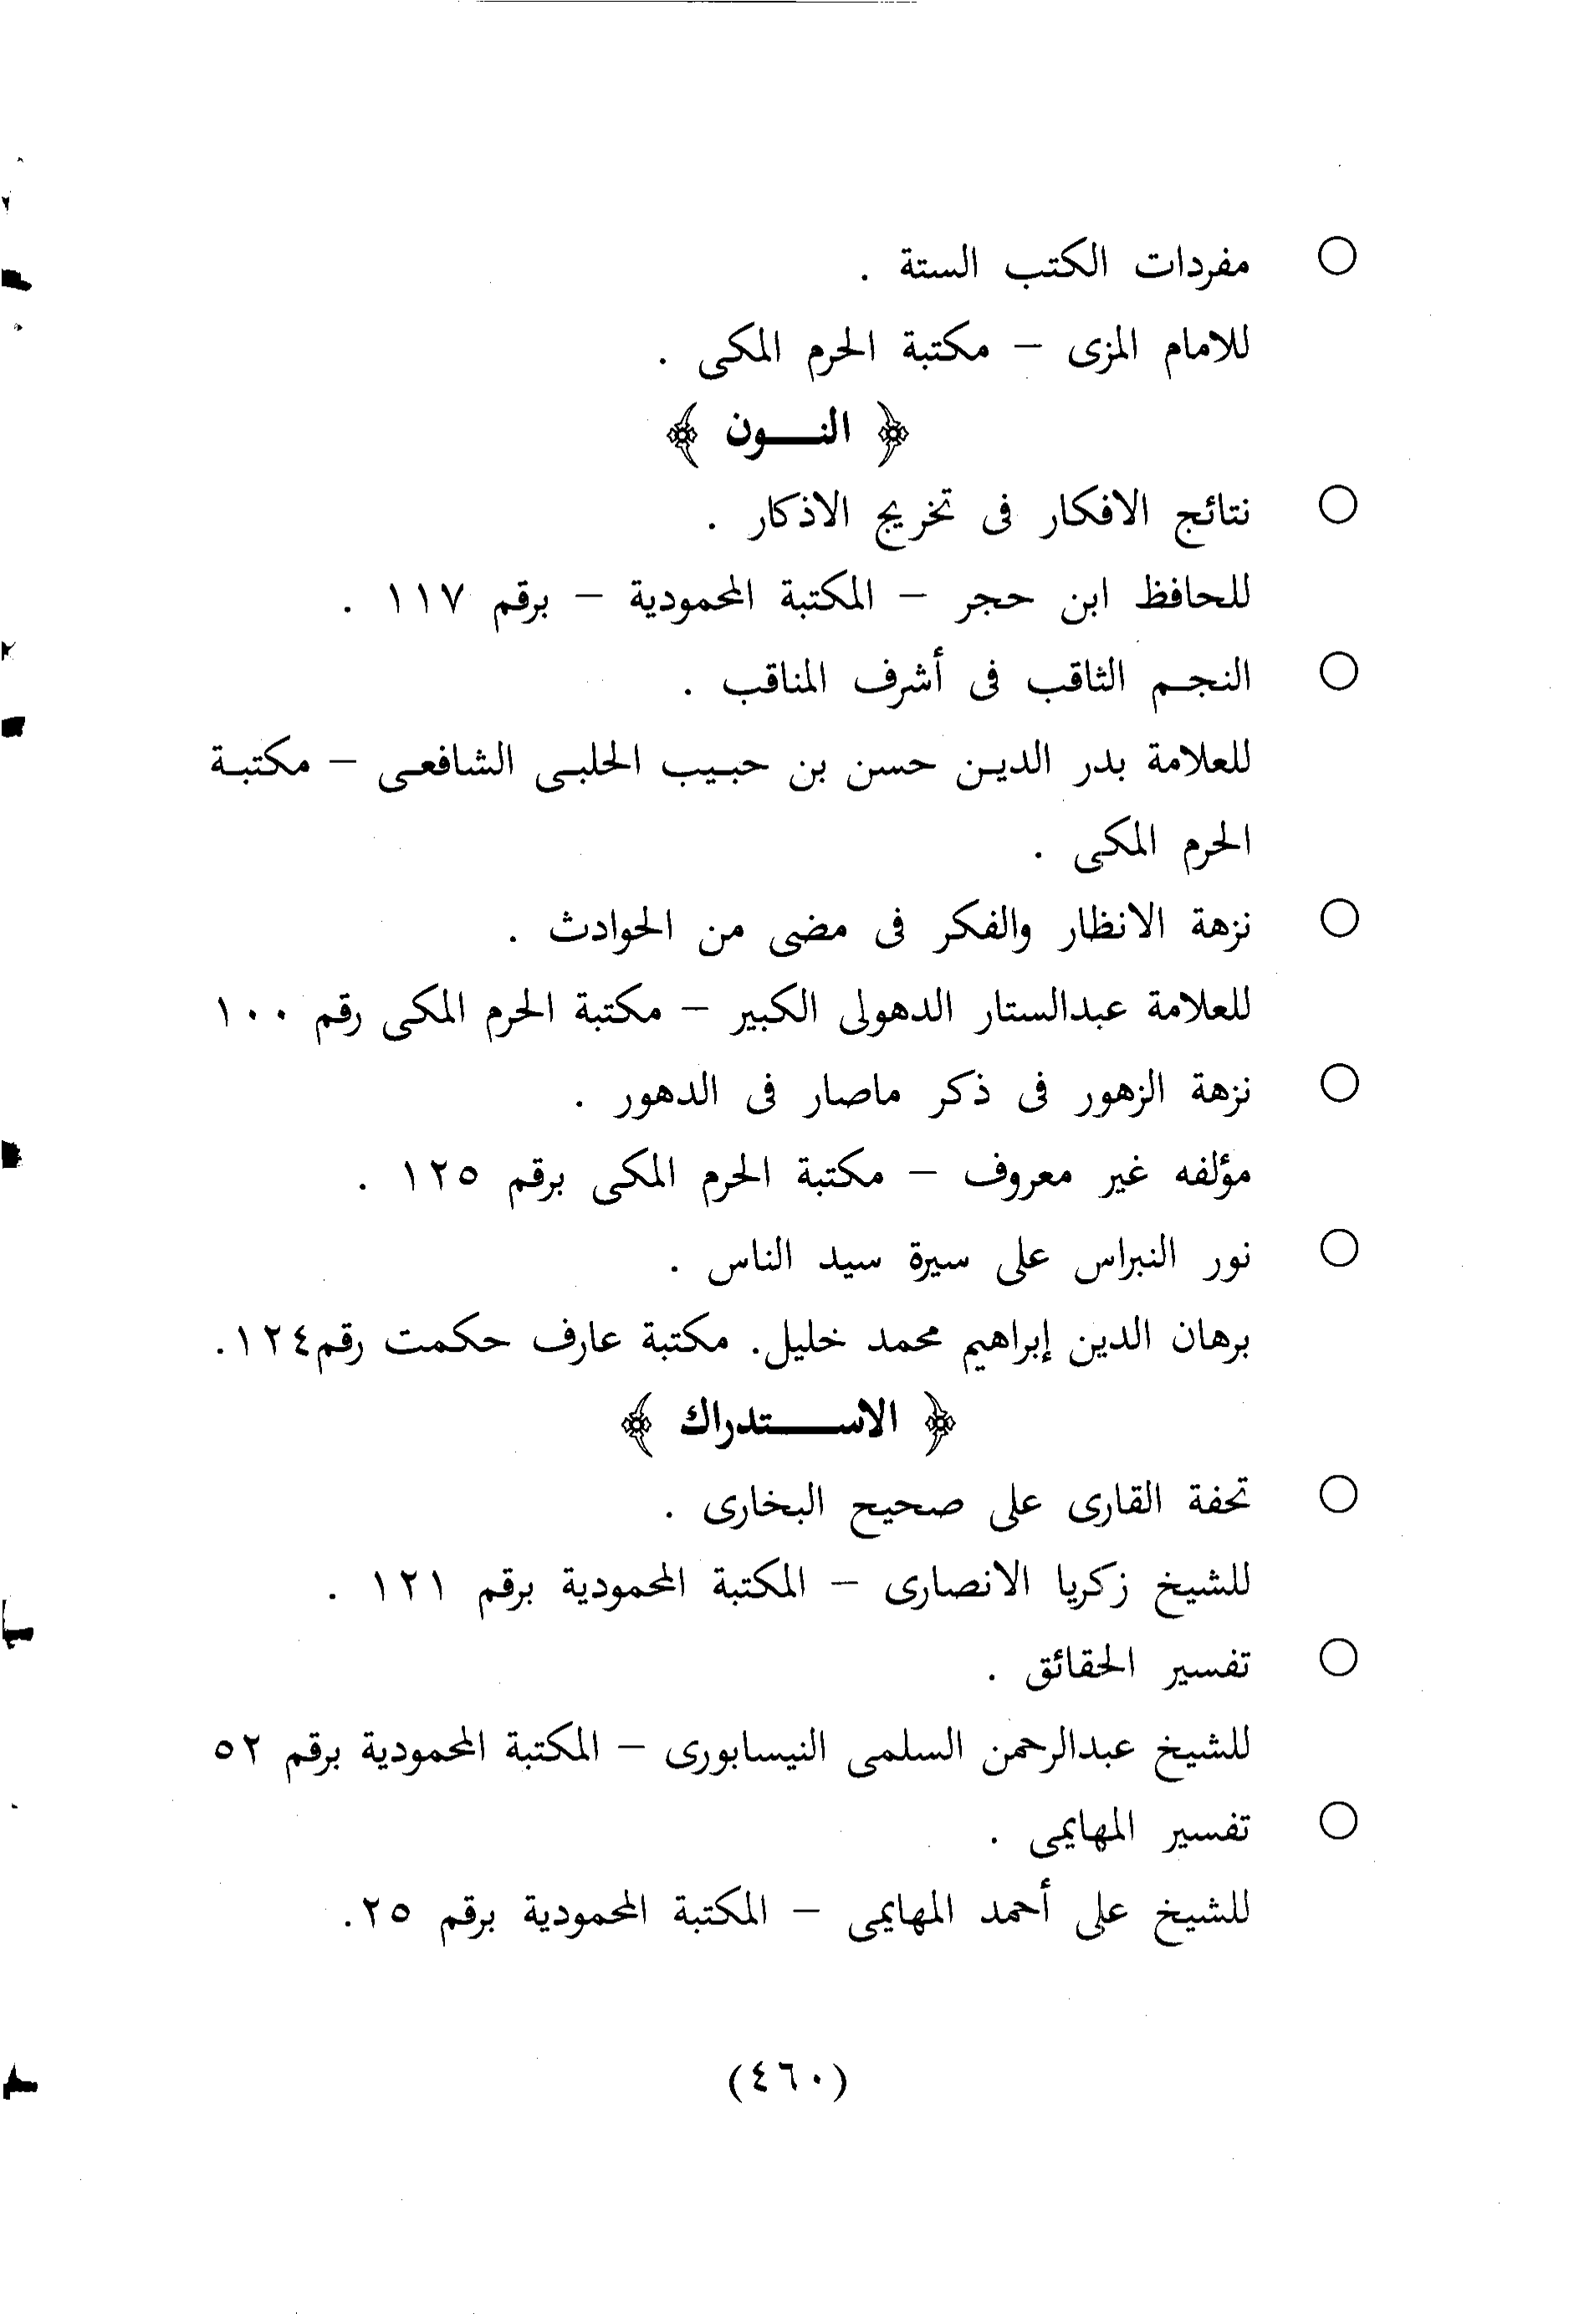 ○ مفردات الكتب الستة .
للامام المزى – مكتبة الحرم المكى .
﴿ النـــون ﴾
○ نتائج الافكار فى تخريج الاذكار .
للحافظ ابن حجر – المكتبة المحمودية – برقم ١١٧ .
○ النجم الثاقب فى أشرف المناقب .
للعلامة بدر الدين حسن بن حبيب الحلبى الشافعى – مكتبة
الحرم المكى .
○ نزهة الانظار والفكر فى مضى من الحوادث .
للعلامة عبدالستار الدهولى الكبير – مكتبة الحرم المكى رقم ١٠٠
○ نزهة الزهور فى ذكر ماصار فى الدهور .
مؤلفه غير معروف – مكتبة الحرم المكى برقم ١٢٥ .
○ نور النبراس على سيرة سيد الناس .
برهان الدين إبراهيم محمد خليل. مكتبة عارف حكمت رقم١٢٤.
﴿ الاســـتدراك ﴾
○ تحفة القارى على صحيح البخارى .
للشيخ زكريا الانصارى – المكتبة المحمودية برقم ١٢١ .
○ تفسير الحقائق .
للشيخ عبدالرحمن السلمى النيسابورى – المكتبة المحمودية برقم ٥٢
○ تفسير المهايمى .
للشيخ على أحمد المهايمى – المكتبة المحمودية برقم ٢٥.
(٤٦٠)